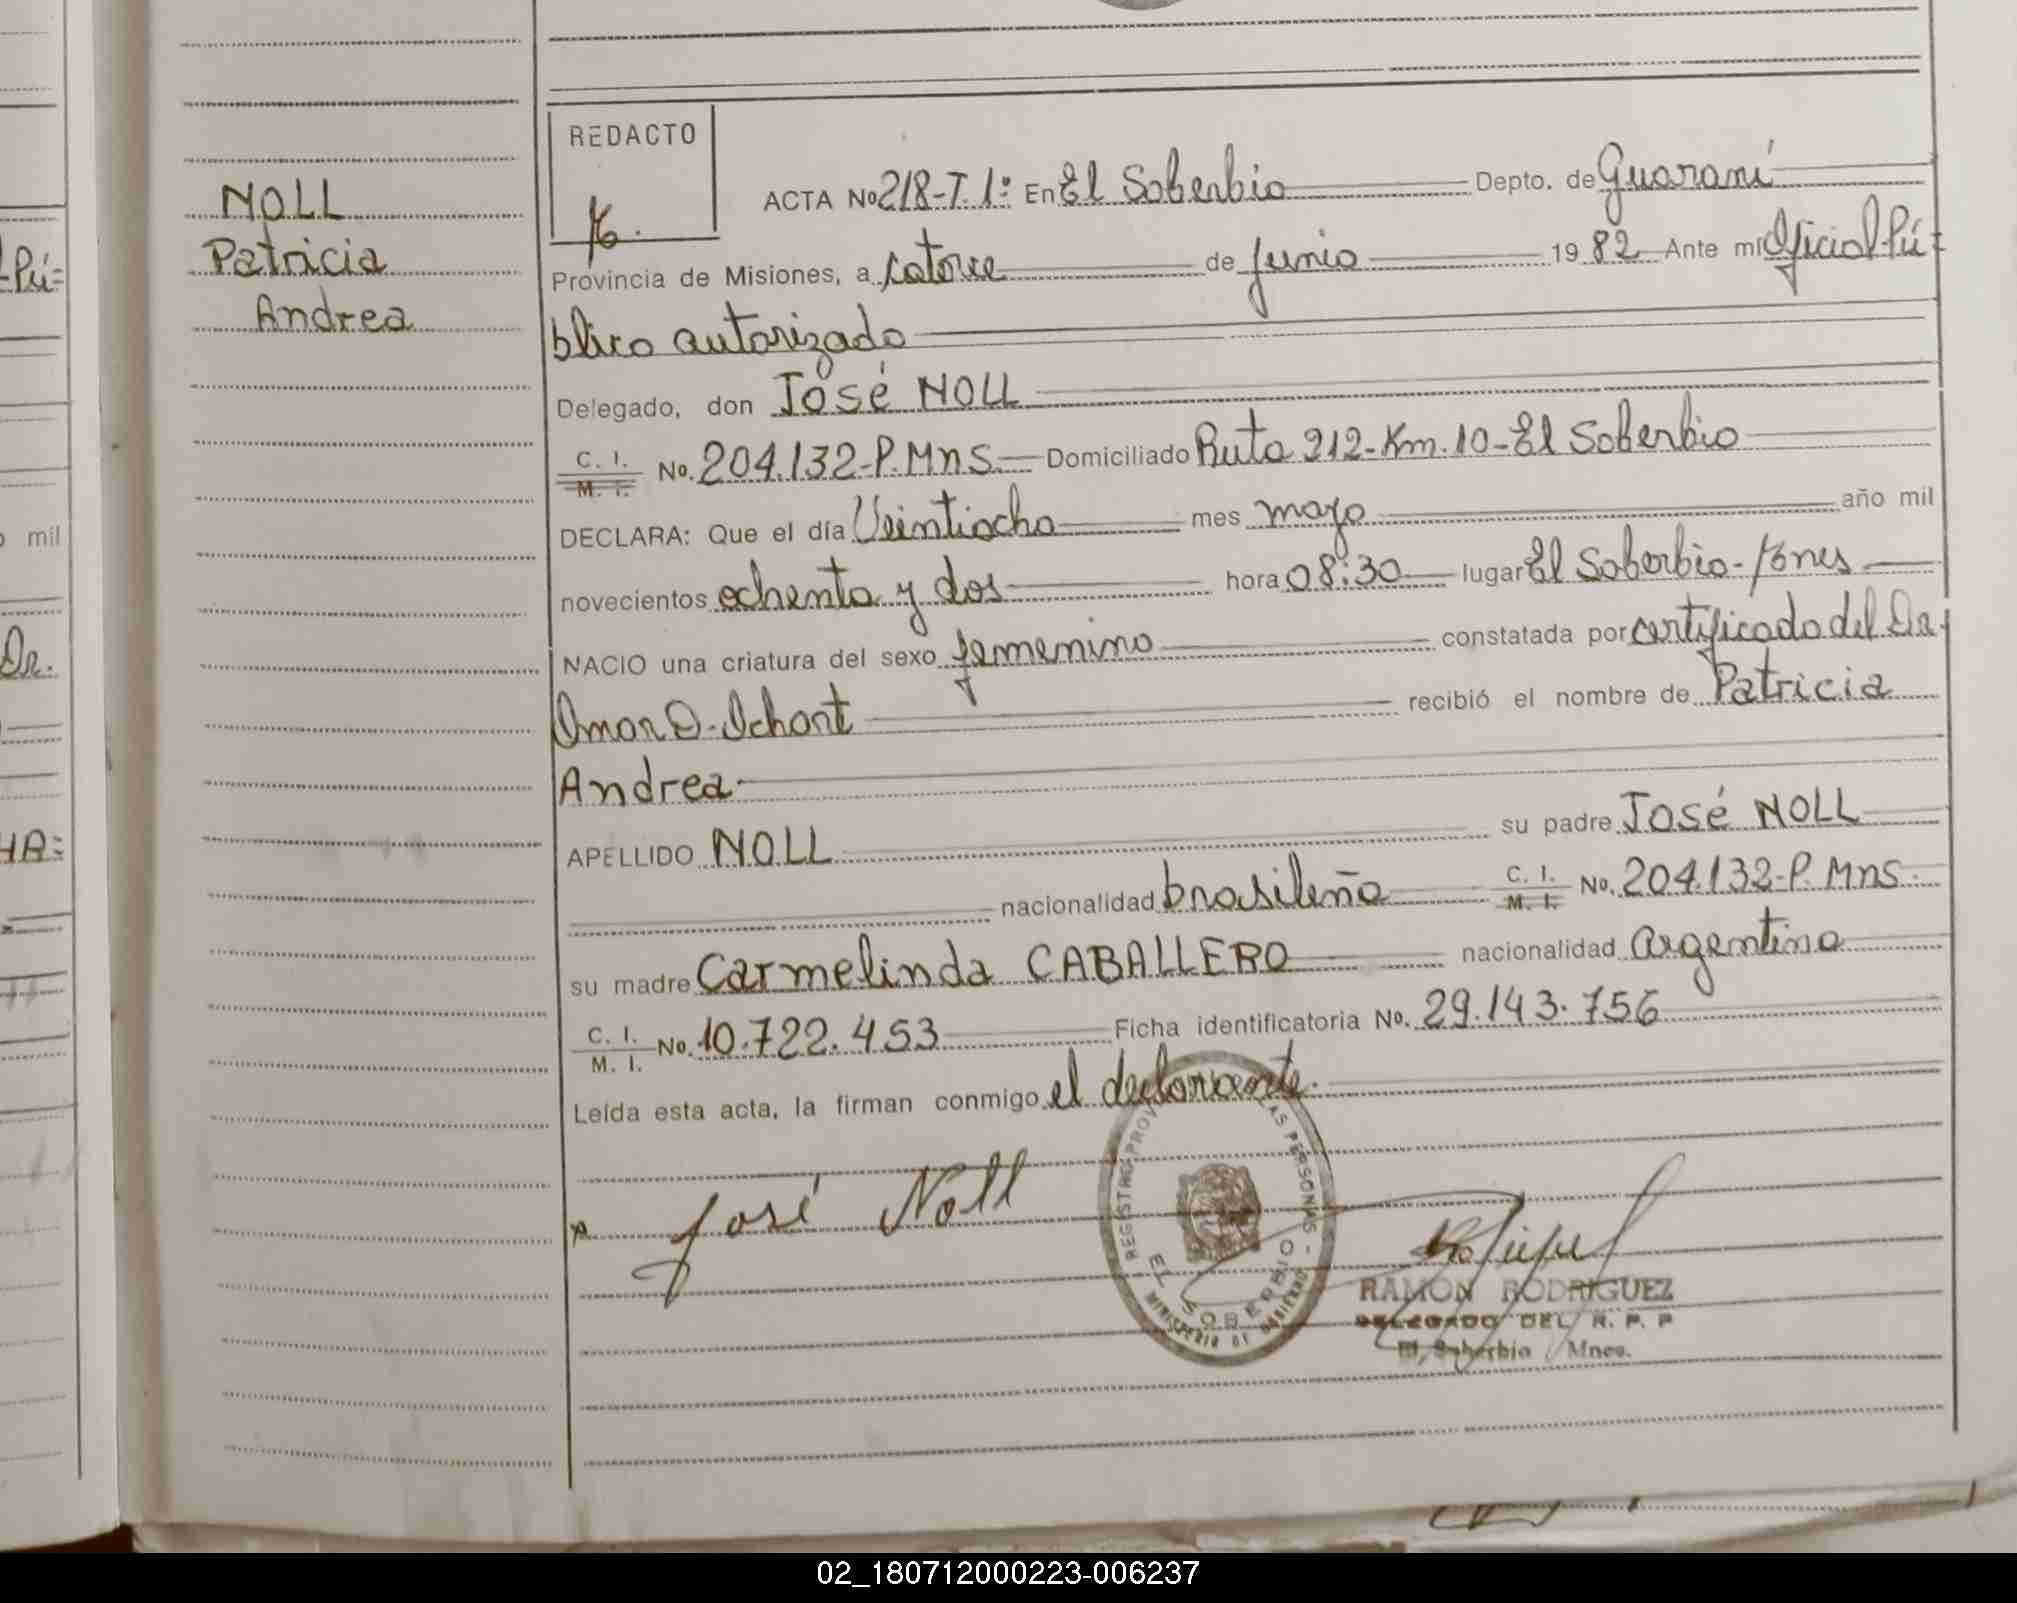 NOLL
Patricia
Andrea
REDACTO
ACTA No 218-T.1º En El Soberbio Depto. de Guaraní
Provincia de Misiones, a catorce de junio 19 82 Ante mi Oficial Pú=
blico autorizado
Delegado, don José NOLL
C. I. M. I. No. 204.132-P.Mns. Domiciliado Ruta 212-Km.10-El Soberbio
DECLARA: Que el día Veintiocho mes mayo año mil
novecientos ochenta y dos hora 08:30 lugar El Soberbio-
NACIO una criatura del sexo femenino constatada por certificado del Dr.
Omar O. recibió el nombre de Patricia
Andrea-
APELLIDO NOLL su padre José NOLL
nacionalidad brasileña C. I. M. I. No. 204.132-P. Mns.
su madre Carmelinda CABALLERO nacionalidad argentina
C. I. M. I. No. 10.722.453 Ficha identificatoria No. 29.143.756
Leída esta acta, la firman conmigo el declarante.
José Noll
REGISTRO PROV AS PERSONAS -
EL SOBERBIO
MINISTERIO DE GOBIERNO
RAMON RODRIGUEZ
DELEGADO DEL R. P. P
El Soberbio Mnes.
-Pú=
mil
Dr.
HA=
02_180712000223-006237